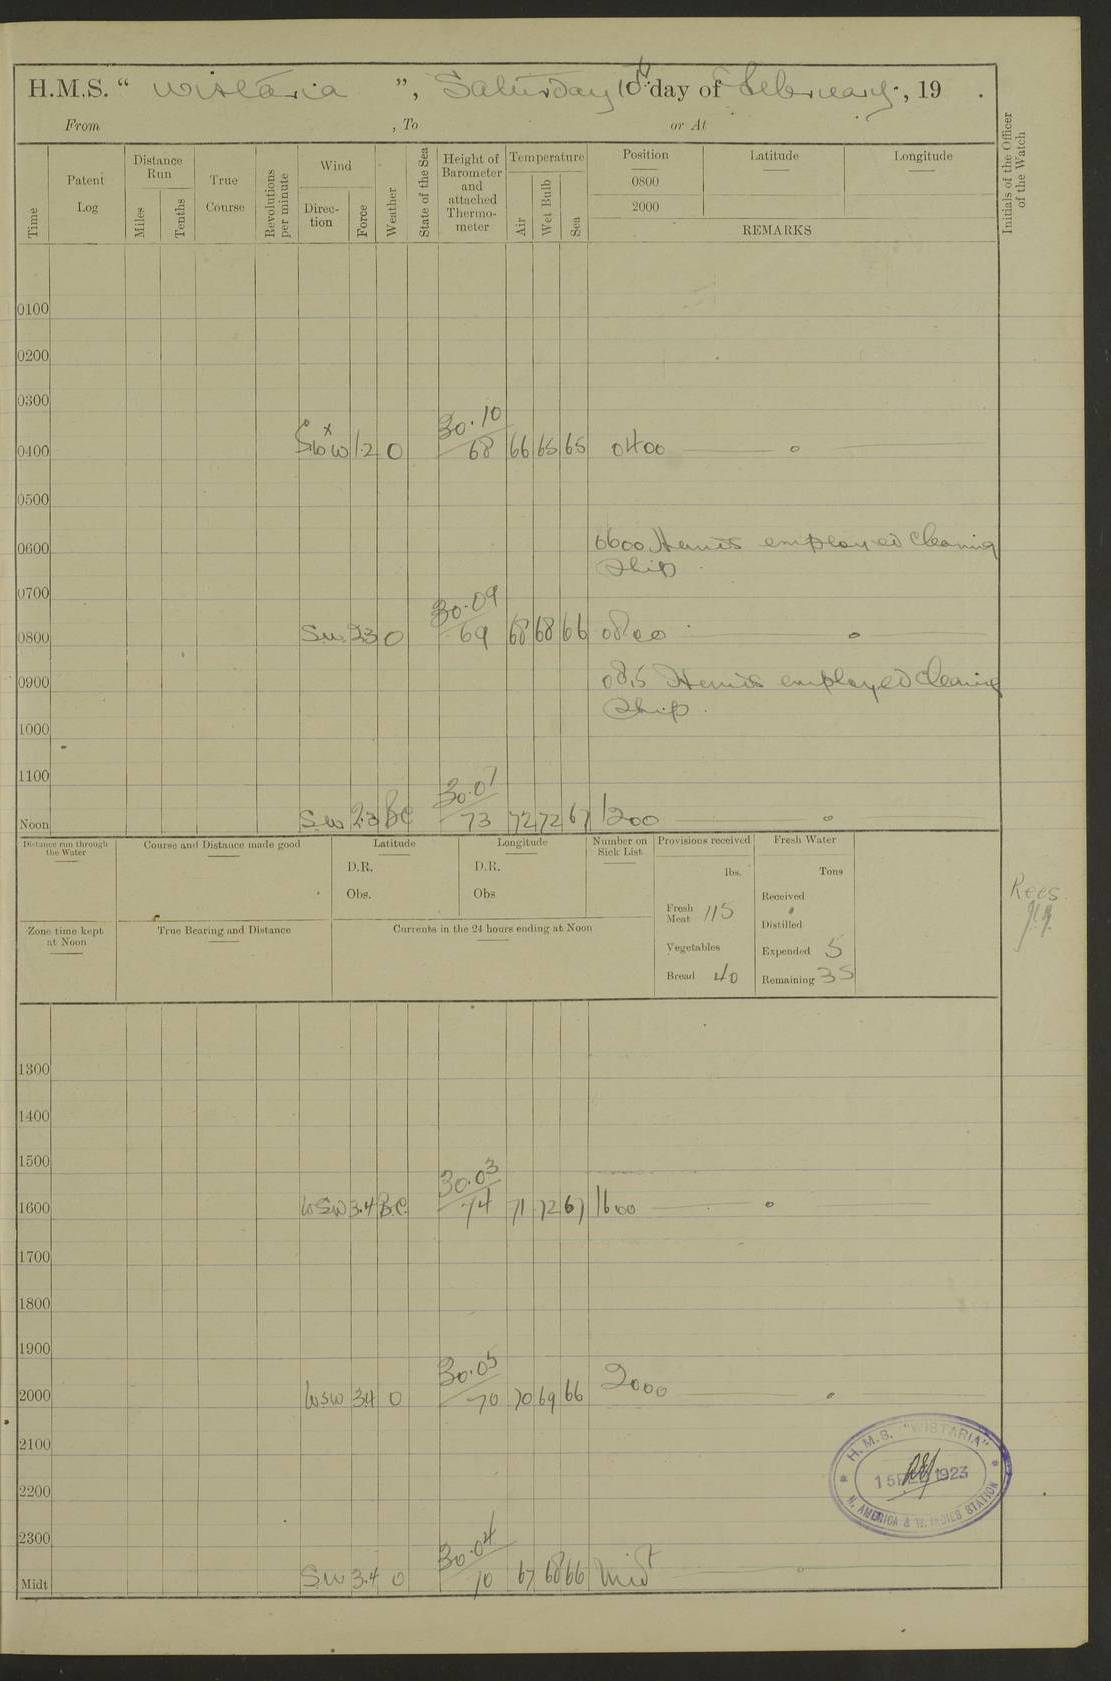 H.M.S. “ Wistaria ”, Saturday 10th day of February, 19 .
From , To or At
Time
Patent Log
Distance Run
Miles
Tenths
True Course
Revolutions per minute
Wind
Direction
Force
Weather
State of the Sea
Height of Barometer and attached Thermometer
Temperature
Air
Wet Bulb
Sea
Position
0800
2000
Latitude
Longitude
REMARKS
Initials of the Officer of the Watch
0100
0200
0300
30.10
0400 SWxW 1.2 O 68 66 65 65 0400
0500
0600 0600 Hands employed Cleaning
Ship
0700
30.09
0800 SW 2.3 O 69 68 68 66 0800
0900 0815 Hands employed Cleaning
Ship.
1000
1100
30.07
Noon SW 2.3 BC 73 72 72 67 1200
Distance run through the Water
Course and Distance made good
Latitude
D.R.
Obs.
Longitude
D.R.
Obs
Number on Sick List
Provisions received
lbs.
Fresh Meat 115
Vegetables
Bread 40
Fresh Water
Tons
Received
Distilled
Expended 5
Remaining 35
Zone time kept at Noon
True Bearing and Distance
Currents in the 24 hours ending at Noon
Rees
1300
1400
1500
30.03
1600 WSW 3.4 B.C. 74 71 72 67 1600
1700
1800
1900
30.05
2000 WSW 34 O 70 70 69 66 2000
2100
2200
2300
30.04
Midt SW 3.4 O 70 67 68 66 Midt
H.M.S. "WISTARIA"
15 FEB 1923
N. AMERICA & W. INDIES STATION